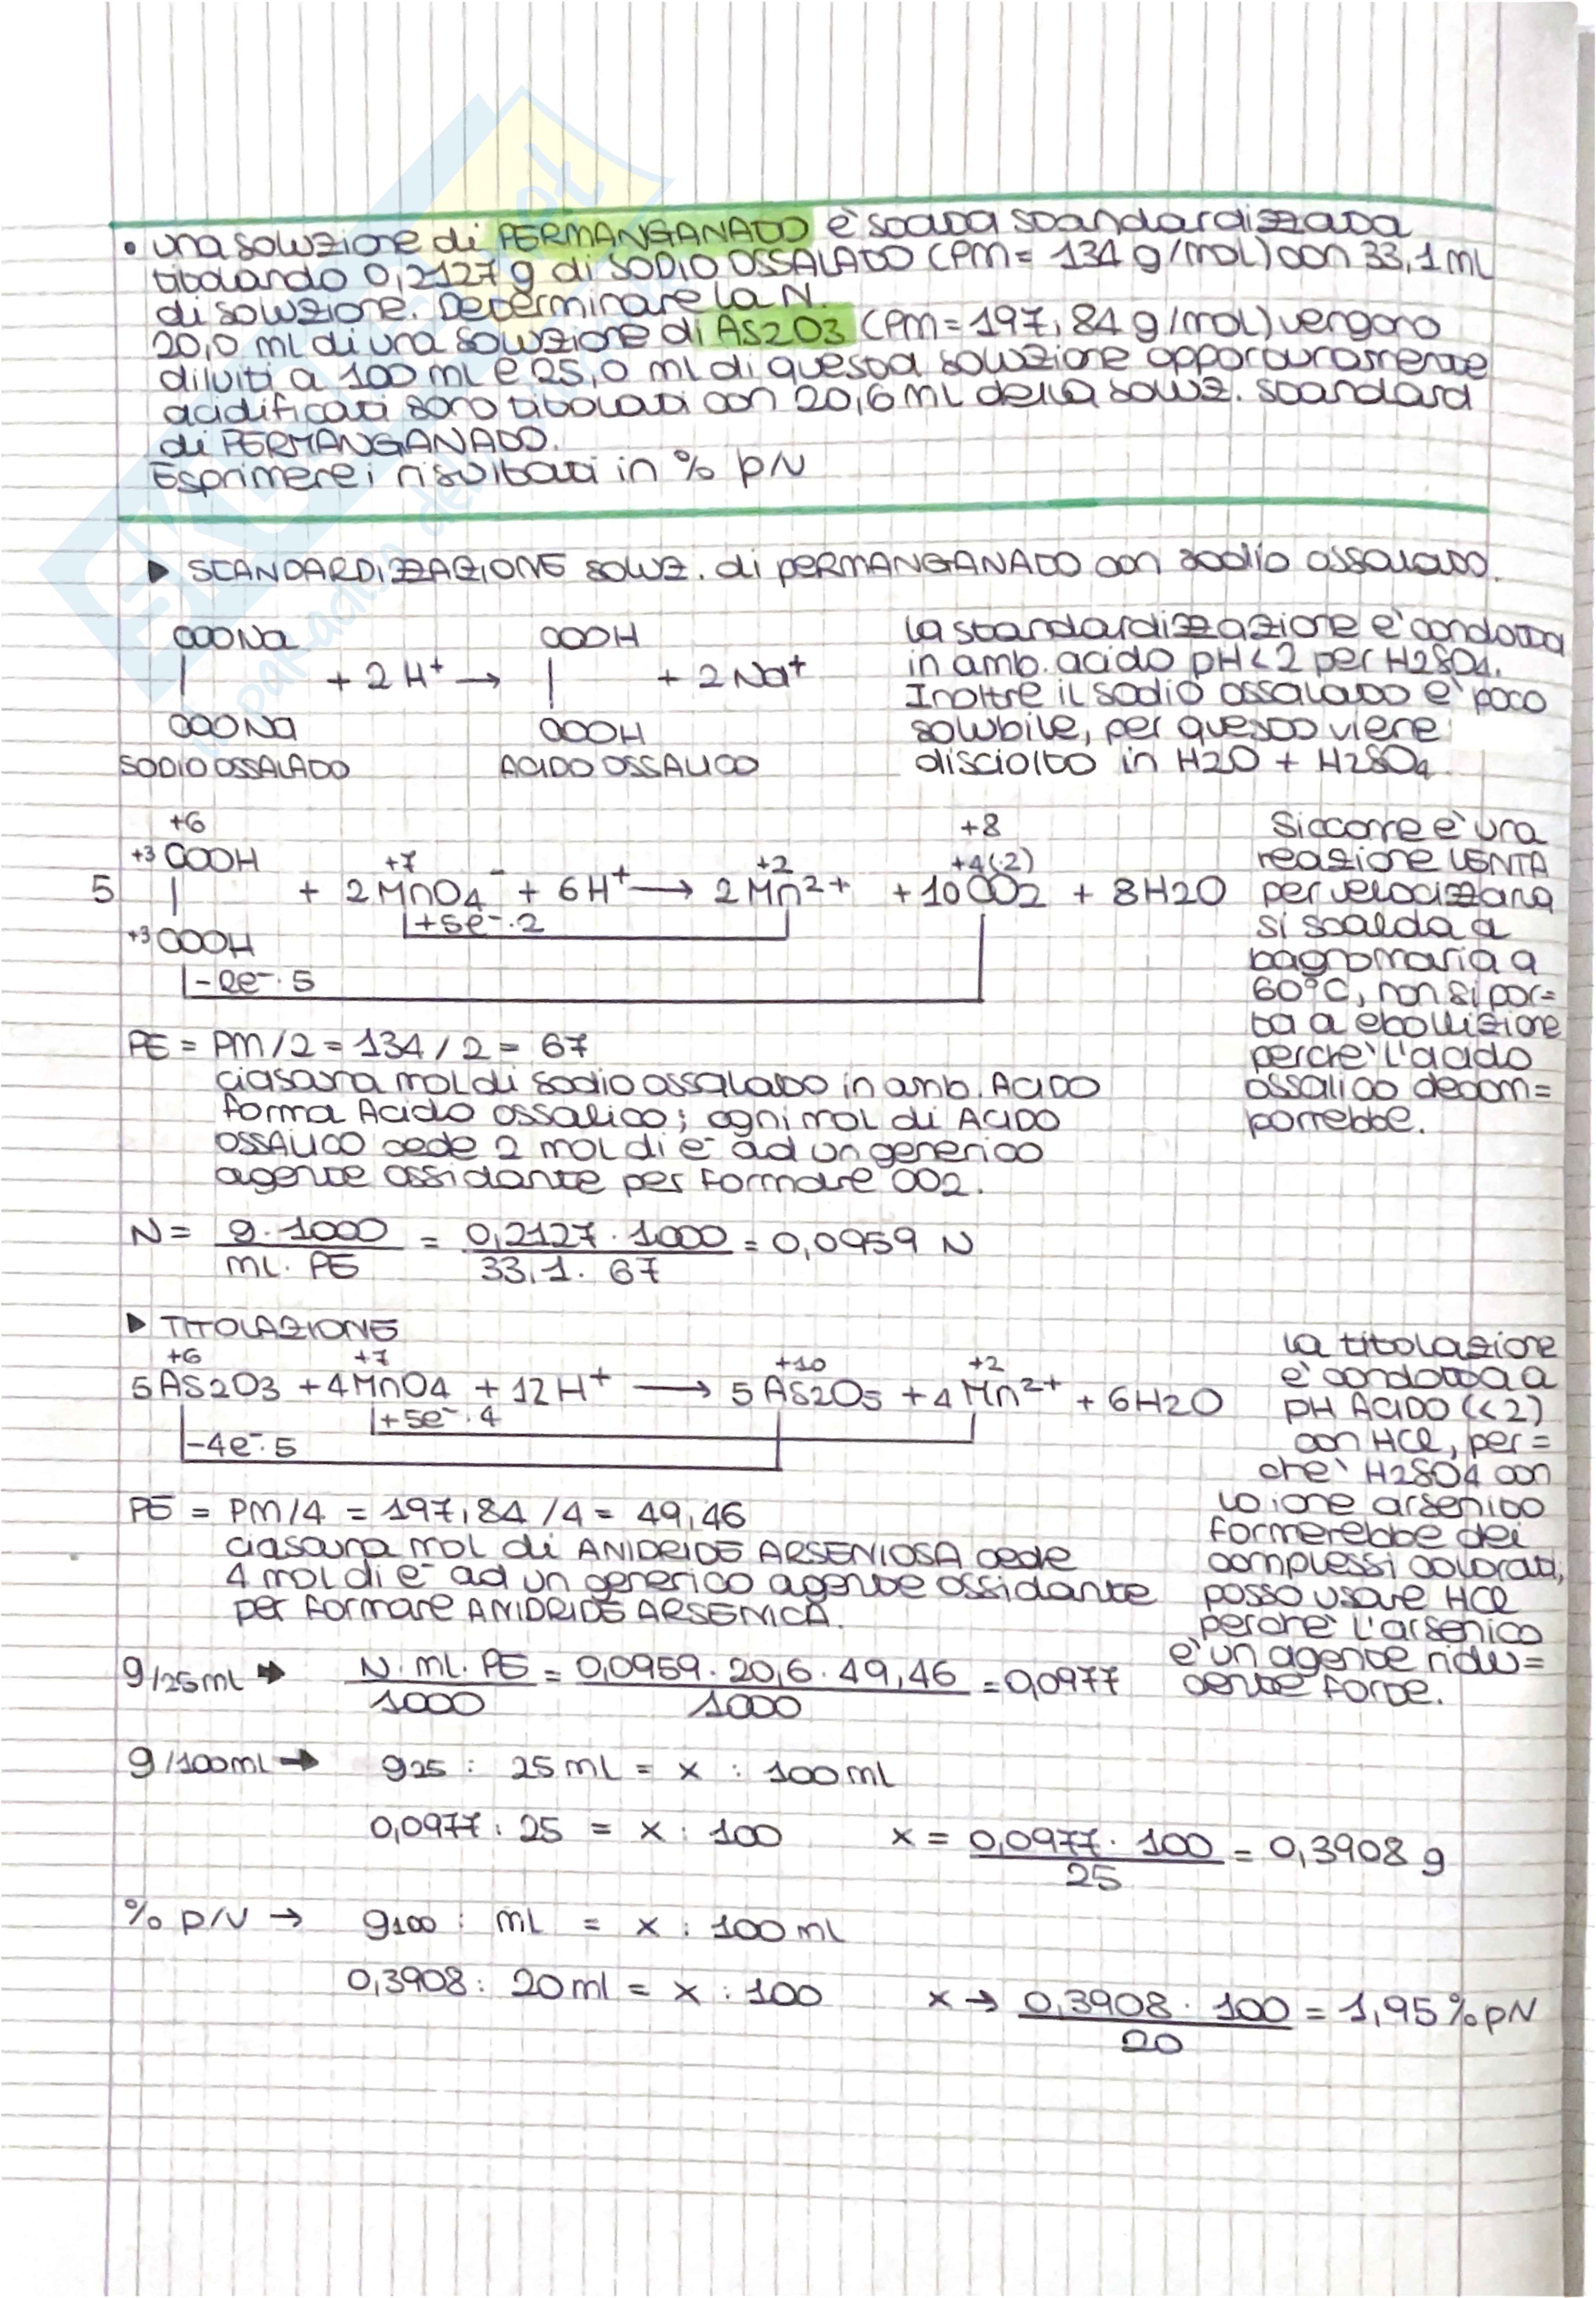 • una soluzione di PERMANGANATO è stata standardizzata
titolando 0,2127 g di SODIO OSSALATO (PM= 134 g/mol) con 33,1 ml
di soluzione. Determinare la N.
20,0 ml di una soluzione di AS2O3 (PM=197,84 g/mol) vengono
diluiti a 100 ml e 25,0 ml di questa soluzione opportunamente
acidificati sono titolati con 20,6 ml della soluz. standard
di PERMANGANATO.
Esprimere i risultati in % p/V
▶ STANDARDIZZAZIONE soluz. di PERMANGANATO con sodio ossalato.
COONa COOH
| + 2H⁺ → | + 2Na⁺
COONa COOH
SODIO OSSALATO ACIDO OSSALICO
la standardizzazione e' condotta
in amb. acido pH<2 per H2SO4.
Inoltre il sodio ossalato e' poco
solubile, per questo viene
disciolto in H2O + H2SO4
+6 +8
+3 COOH +7 +2 +4(·2)
5 | + 2MnO4⁻ + 6H⁺ → 2Mn²⁺ + 10CO2 + 8H2O
+5e⁻·2
+3 COOH
-2e⁻·5
Siccome e' una
reazione LENTA
per velocizzarla
si scalda a
bagnomaria a
60°C, non si por=
ta a ebollizione
perche' l'acido
ossalico decom=
porrebbe.
PE = PM/2 = 134/2 = 67
ciascuna mol di sodio ossalato in amb. ACIDO
forma Acido ossalico; ogni mol di ACIDO
OSSALICO cede 2 mol di e⁻ ad un generico
agente ossidante per formare CO2.
N = g·1000 / ml·PE = 0,2127·1000 / 33,1·67 = 0,0959 N
▶ TITOLAZIONE
+6 +7 +10 +2
5AS2O3 + 4MnO4 + 12H⁺ → 5AS2O5 + 4Mn²⁺ + 6H2O
+5e⁻·4
-4e⁻·5
la titolazione
e' condotta a
pH ACIDO (<2)
con HCl, per=
che' H2SO4 con
lo ione arsenico
formerebbe dei
complessi colorati,
posso usare HCl
perche' l'arsenico
e' un agente ridu=
cente forte.
PE = PM/4 = 197,84/4 = 49,46
ciascuna mol di ANIDRIDE ARSENIOSA cede
4 mol di e⁻ ad un generico agente ossidante
per formare ANIDRIDE ARSENICA.
g/25ml → N·ml·PE / 1000 = 0,0959·20,6·49,46 / 1000 = 0,0977
g/100ml → g25 : 25ml = x : 100ml
0,0977 : 25 = x : 100 x = 0,0977·100 / 25 = 0,3908 g
% p/V → g100 : ml = x : 100ml
0,3908 : 20ml = x : 100 x → 0,3908·100 / 20 = 1,95 % p/V